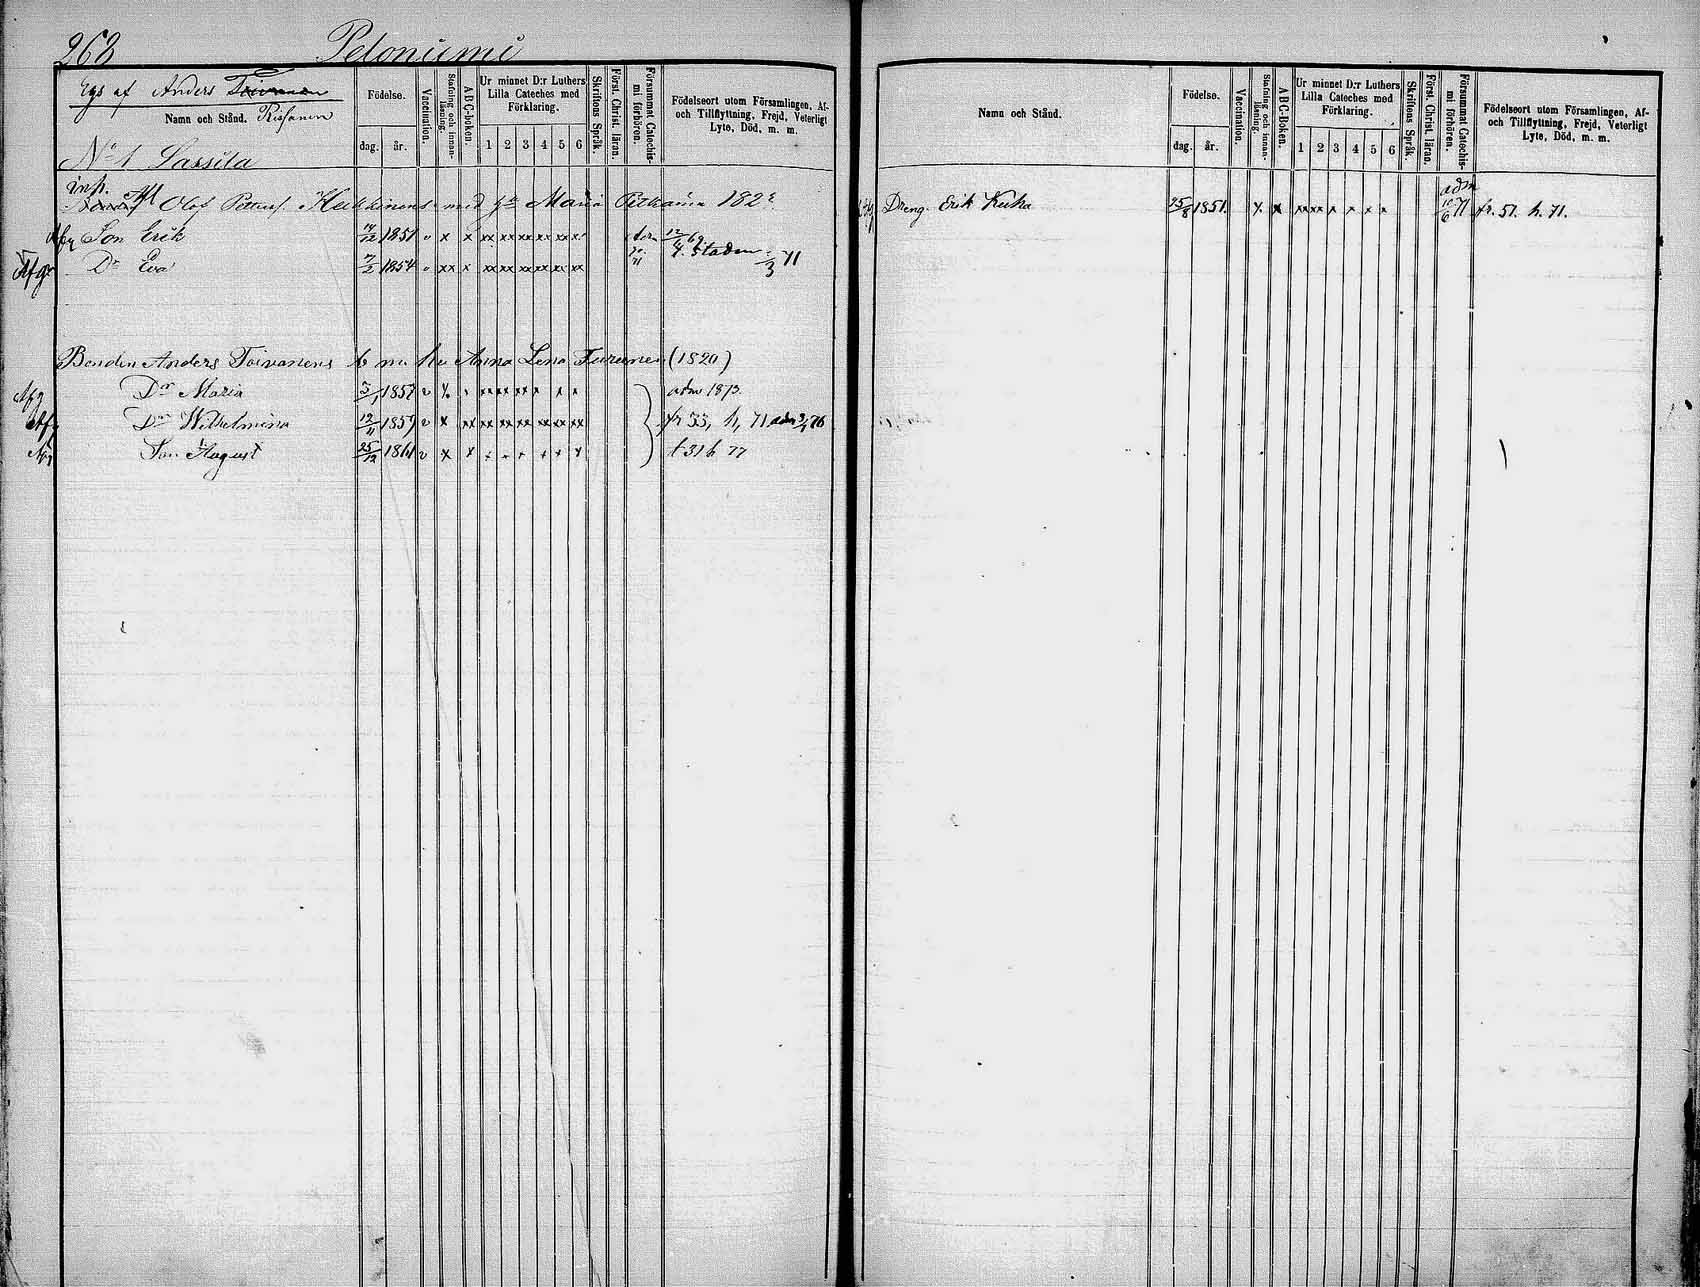 268 Peloniemi
Egs af Anders Toivanen
Namn och Stånd. Rissanen
Födelse.
dag. år.
Vaccination.
Stafning och innan-läsning.
ABC-boken.
Ur minnet D:r Luthers
Lilla Cateches med
Förklaring.
1 2 3 4 5 6
Skriftens Språk.
Först. Christ. läran.
Försummat Catechis-mi förhören.
Födelseort utom Församlingen, Af-
och Tillflyttning, Frejd, Veterligt
Lyte, Död, m. m.
No 1 Lassila
inh.
Olof Petters Heikkinens med Maria Pitkäinen 182
Afg Son Erik 14/12 1851 v x x xx xx xx xx xx xx adm 12/4 69
Afg Dr Eva 7/2 1854 v xx x xx xx xx xx xx xx t. Staden /3 71
Bonden Anders Toivanens Anna Lena Turunen (1820)
Afg Dr Maria 3/1 1857 v adm 1873.
Afg Dr Wilhelmina 12/11 1859 v x xx xx xx xx xx xx xx fr 33, h, 71 adm 76
Afg Son August 25/12 1861 v x x t 31 h 77
Namn och Stånd.
Födelse.
dag. år.
Vaccination.
Stafning och innan-läsning.
ABC-boken.
Ur minnet D:r Luthers
Lilla Cateches med
Förklaring.
1 2 3 4 5 6
Skriftens Språk.
Först. Christ. läran.
Försummat Catechis-mi förhören.
Födelseort utom Församlingen, Af-
och Tillflyttning, Frejd, Veterligt
Lyte, Död, m. m.
adm
Dreng Erik Keiha 25/8 1851. x x xx xx x x x x 10/6 71 fr. 51. h. 71.